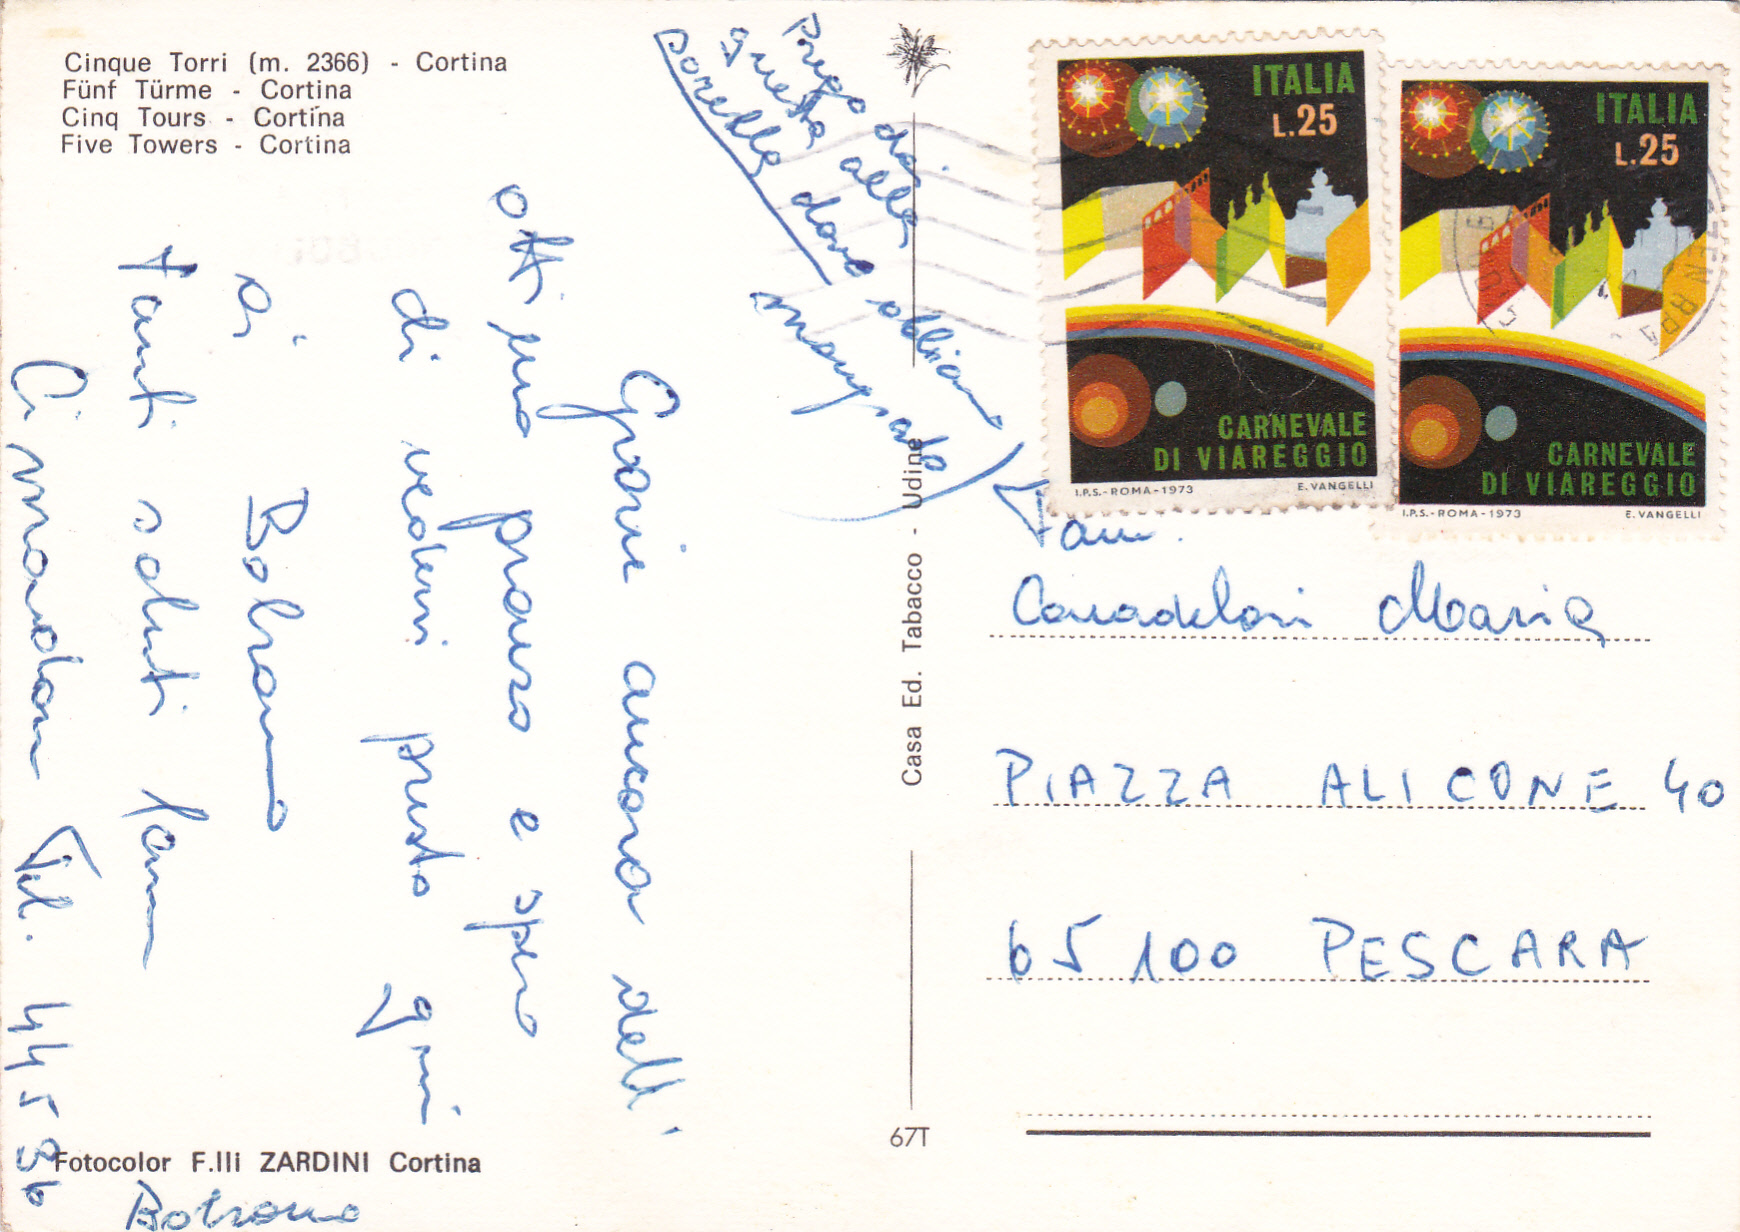 Cinque Torri (m. 2366) - Cortina
Fünf Türme - Cortina
Cinq Tours - Cortina
Five Towers - Cortina
Prego dai
questa alla
sorella dove abbiamo
mangiato
Grazie ancora dell'
ottimo pranzo e spero
di vedervi presto qui
a Bolzano
Tanti saluti fam
Cimadon Tel. 44596
Bolzano
Fotocolor F.lli ZARDINI Cortina
Casa Ed. Tabacco - Udine
67T
ITALIA
L.25
CARNEVALE
DI VIAREGGIO
I.P.S.-ROMA-1973 E. VANGELLI
ITALIA
L.25
CARNEVALE
DI VIAREGGIO
I.P.S.-ROMA-1973 E. VANGELLI
Fam.
Maria
PIAZZA ALICONE 40
65100 PESCARA